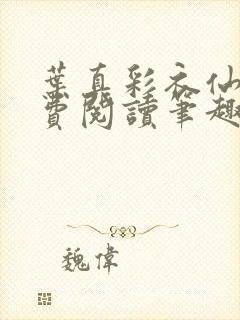 葉真彩衣仙
費閱讀筆趣
魏偉